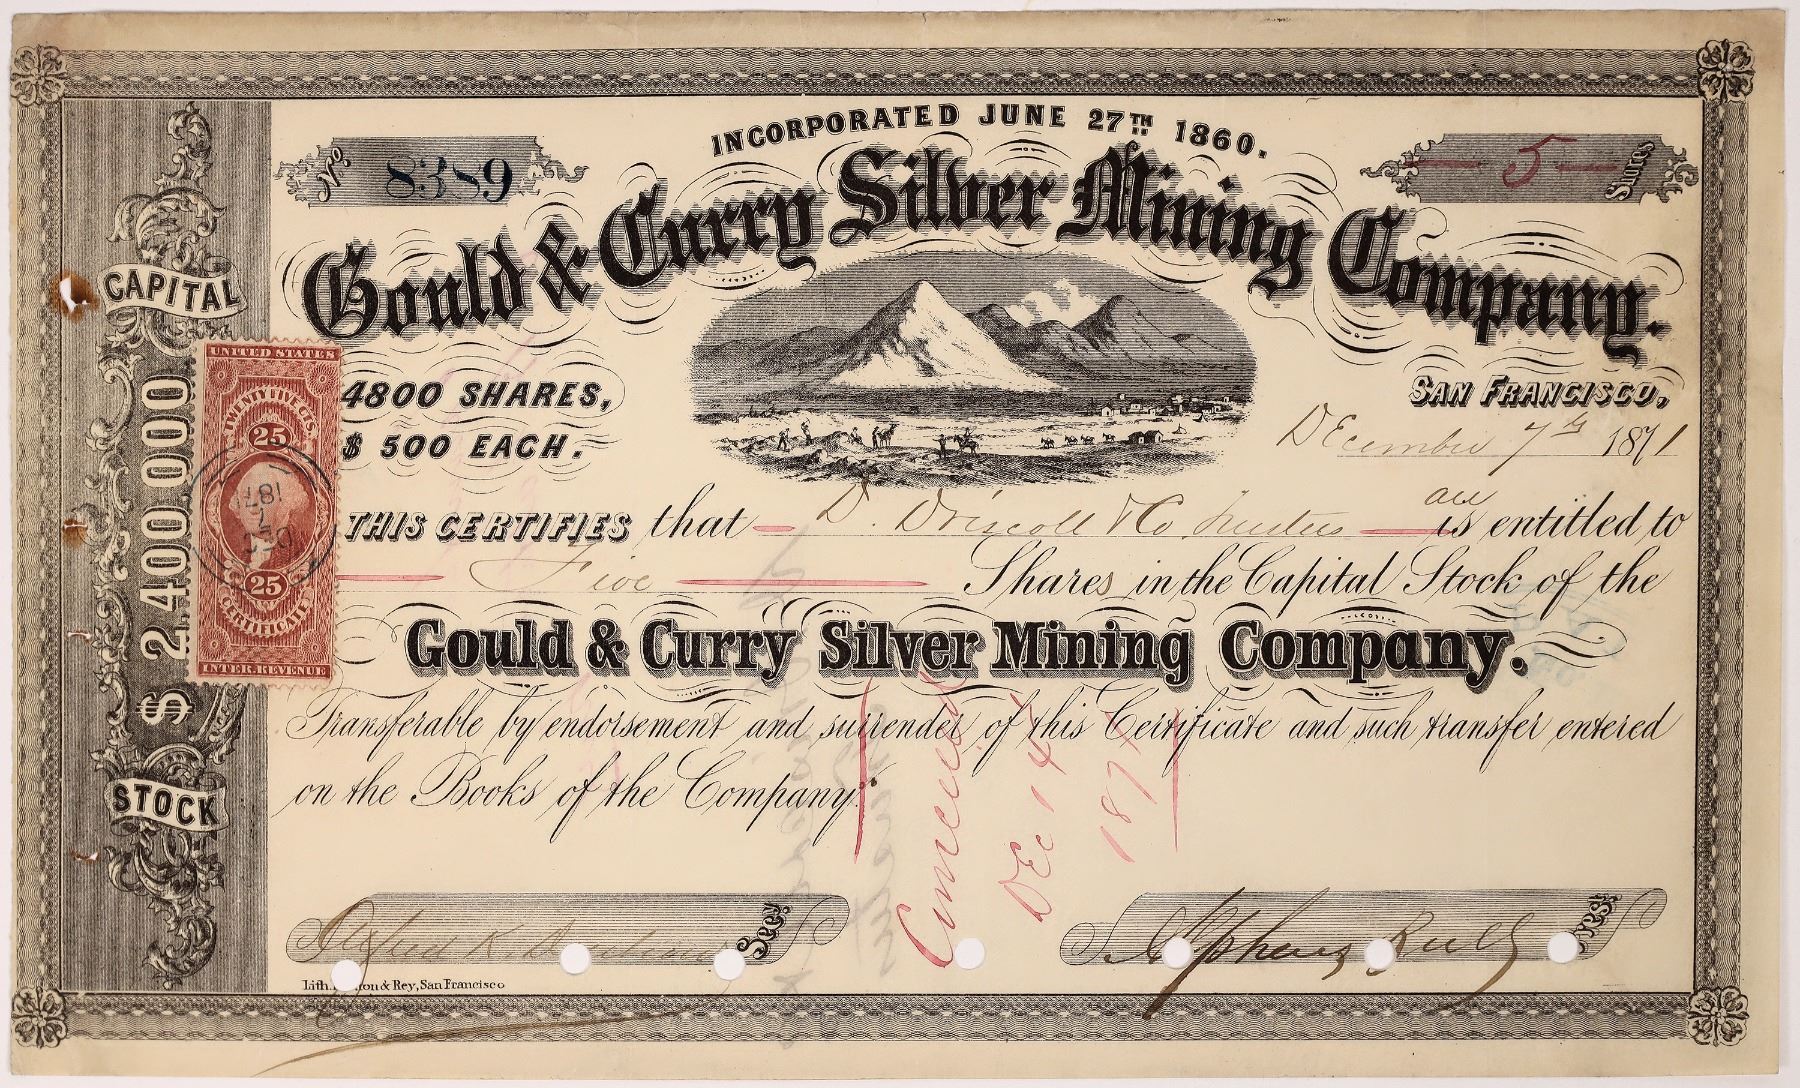 INCORPORATED JUNE 27TH 1860.
No. 8389
5 Shares
Gould & Curry Silver Mining Company.
CAPITAL
$ 2 400 000
STOCK
UNITED STATES
TWENTY FIVE CTS.
25
DEC 7 1871
25
CERTIFICATE
INTER. REVENUE
4800 SHARES,
$ 500 EACH.
SAN FRANCISCO,
December 7th 1871
THIS CERTIFIES that D. Driscoll & Co Trustees are is entitled to
Five Shares in the Capital Stock of the
Gould & Curry Silver Mining Company.
Transferable by endorsement and surrender of this Certificate and such transfer entered
on the Books of the Company.
Cancelled
Dec 14
187
Alfred K. Secy.
Pres.
Lith. &Rey, San Francisco